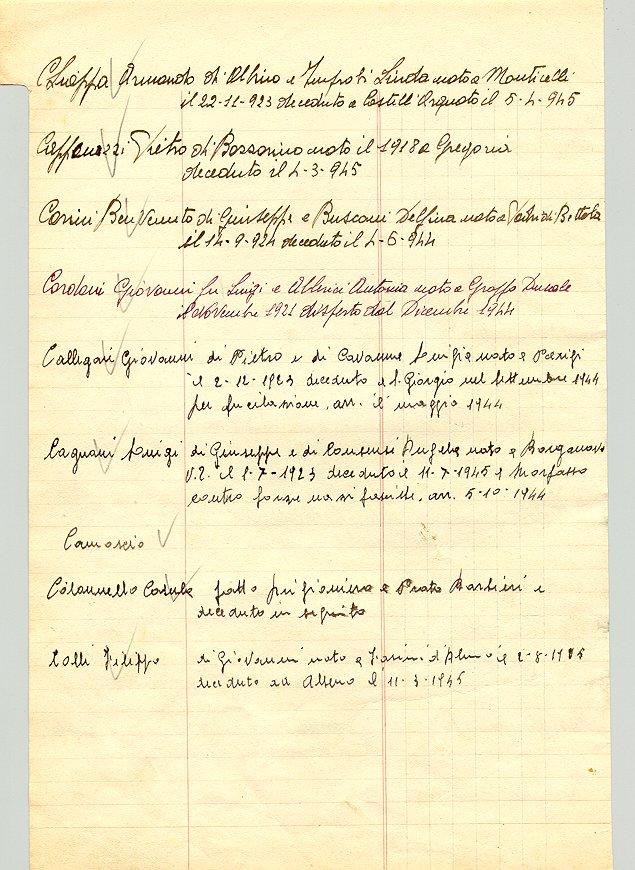 Chiappa Armando di Albino e Improti Linda nato a Monticelli
il 22-11-923 deceduto a Castell'Arquato il 5-4-945
Pietro di nato il 1918 a
deceduto il 4-3-945
Conini Benvenuto di Giuseppe e Busconi Delfina nato a di Bettola
il 14-9-924 deceduto il 4-6-944
Cordani Giovanni fu Luigi e Antonia nato a Groppo Ducale
il Novembre 1921 disperso dal Dicembre 1944
Callegari Giovanni di Pietro e di Cavanna Luigia nato a Parigi
il 2-12-1923 deceduto a S. Giorgio nel settembre 1944
per fucilazione, arr. il maggio 1944
Cagnani Luigi di Giuseppe e di Angela nato a Borgonovo
V.T. il 8-7-1923 deceduto il 11-7-1945 a Morfasso
contro forze nazifasciste, arr. 5-10-1944
Camoscio
Colannello fatto prigioniero a Prato Barbieri e
deceduto in seguito
Colli Filippo di Giovanni nato a il 2-8-
deceduto ad il 11-3-1945